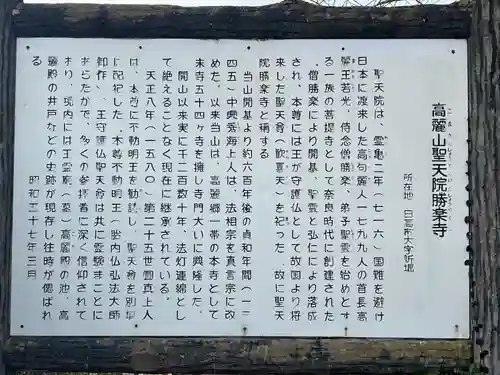 高麗山聖天院勝楽寺
所在地 日高市大字新堀
聖天院は、霊亀二年(七一六)国難を避け
日本に渡来した高句麗人一七九九人の首長高
麗王若光、侍念僧勝楽、弟子聖雲を始めとす
る一族の菩提寺として奈良時代に創建された
。僧勝楽により開基、聖雲と弘仁により落成
され、本尊には王が守護仏として故国より将
来した聖天尊(歓喜天)を祀った、故に聖天
院勝楽寺と称する
当山開基より約六百年後の貞和年間(一三
四五)中興秀海上人は、法相宗を真言宗に改
めた、以来当山は、高麗郷一帯の本寺として
末寺五十四ヶ寺を擁し寺門大いに興隆した。
開山以来実に千二百数十年、法灯連綿とし
て絶えることなく現在に継承されている。
天正八年(一五八〇)第二十五世圓真上人
は、本尊に不動明王を勧請し、聖天尊を別壇
に配祀した。本尊不動明王(胎内仏弘法大師
御作)、王守護仏聖天尊は共に霊験まことに
あらたかで、多くの参拝者に深く信仰されて
おり、境内には王霊廟(墓)高麗殿の池、高
麗殿の井戸などの史跡が現存し往時が偲ばれ
る
昭和三十七年三月